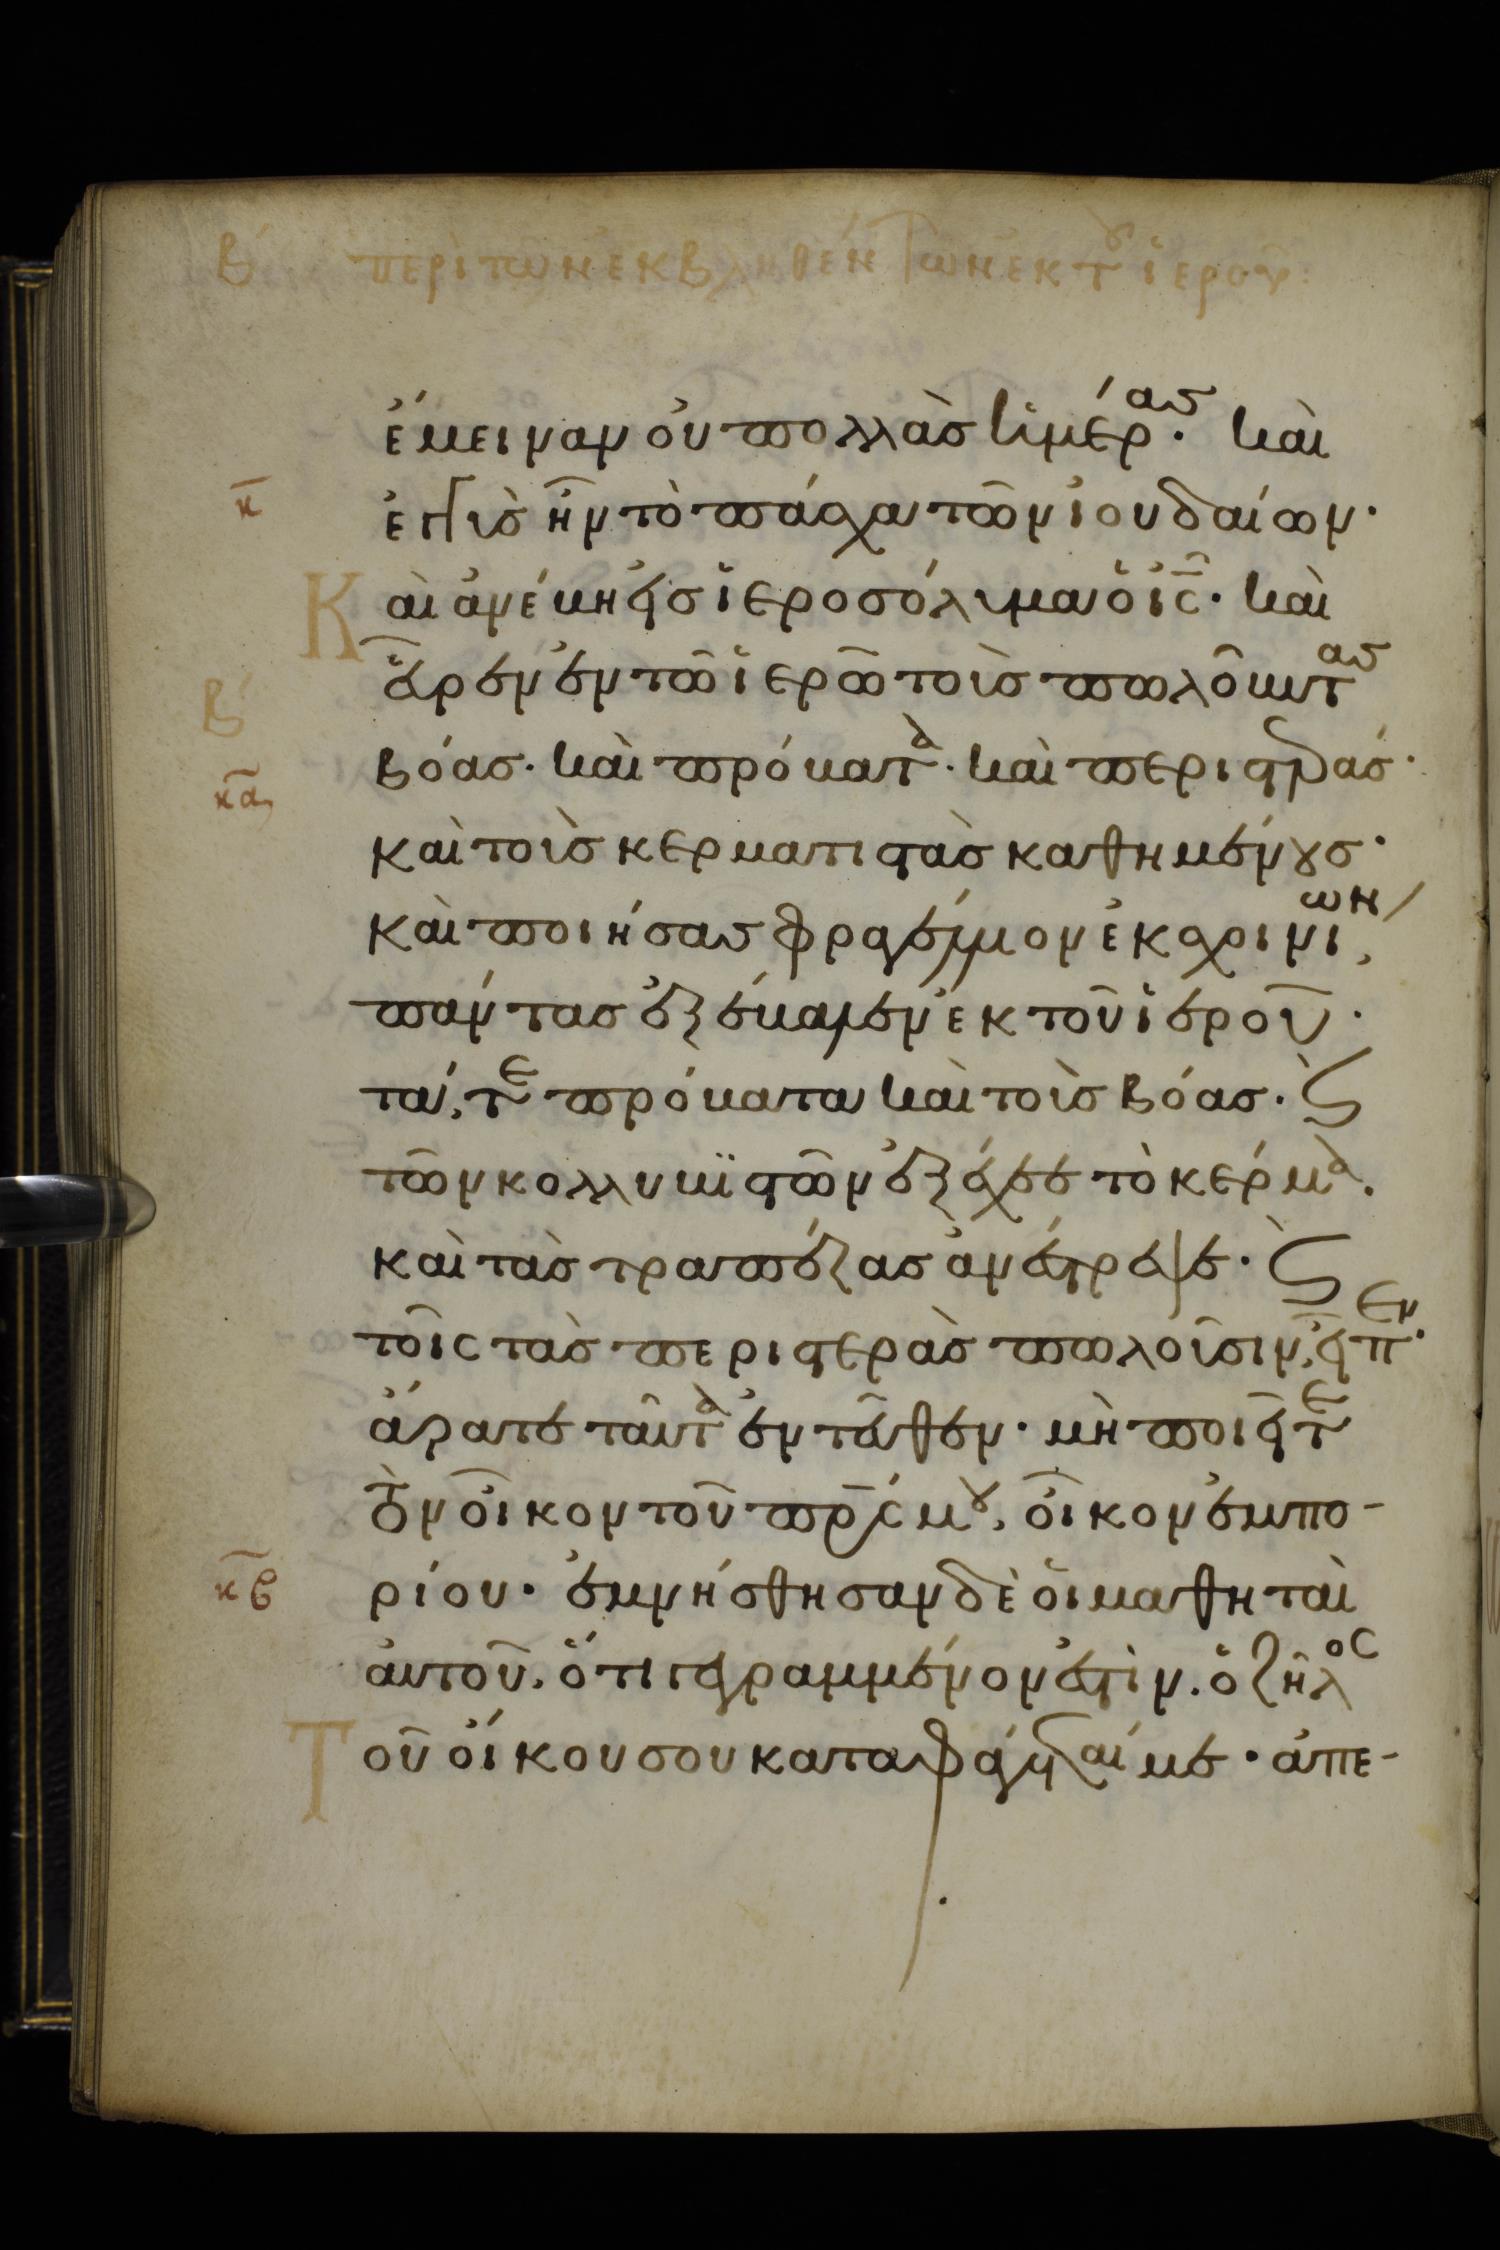 β´ περὶ τῶν ἐκβληθέντων ἐκ τοῦ ἱεροῦ:
ἔμειναν οὐ πολλὰς ἡμέρας· καὶ
κ̅ ἐγγὺς ἦν τὸ πάσχα τῶν ἰουδαίων·
Καὶ ἀνέβη εἰσ ἱεροσόλυμα ὁ ι̅ς̅· καὶ
β´ εὗρεν ἐν τῶ ἱερῶ τοὺς πωλοῦντας
κ̅α̅ βόας· καὶ πρόβατα· καὶ περιστεράς·
καὶ τοὺς κερματιστὰς καθημένους·
καὶ ποιήσας φραγέλλιον ἐκ σχοινίων,
πάντας ἐξέβαλεν ἐκ τοῦ ἱεροῦ·
τά, τε πρόβατα καὶ τοὺς βόας· ϗ̀
τῶν κολλυβϊστῶν ἐξέχεε τὸ κέρμα.
καὶ τὰς τραπέζας ἀνέστρεψε· ϗ̀
τοῖς τὰς περιστερὰς πωλοῦσιν, εἶπεν·
ἄρατε ταῦτα ἐντεῦθεν· μὴ ποιεῖτε
τὸν οἶκον τοῦ π̅ρ̅ς̅ μου, οἶκον ἐμπο-
κ̅β̅ ρίου· ἐμνήσθησαν δὲ οἱ μαθηταὶ
αὐτοῦ, ὅτι γεγραμμένον ἐστὶν. ὁ ζῆλος
Τοῦ οἴκου σου καταφάγεταί με· ἀπε-